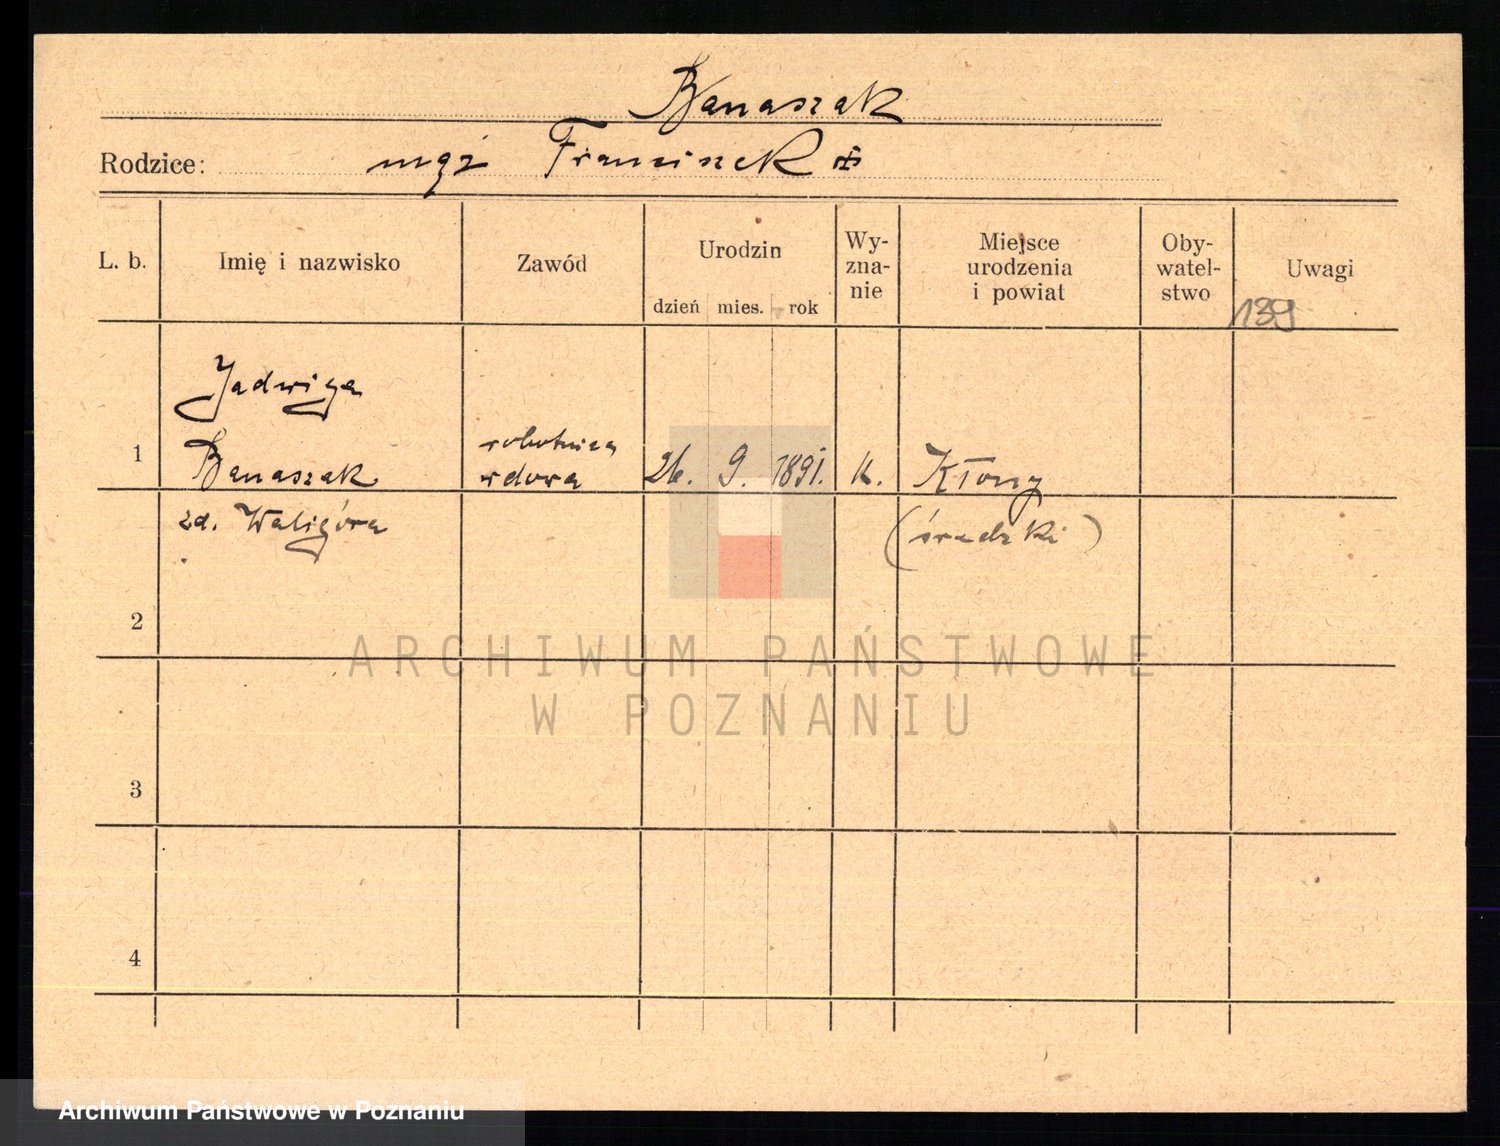 Banaszak
Rodzice: mąż Franciszek
L. b. Imię i nazwisko Zawód Urodzin Wy- Miejsce Oby- Uwagi
zna- urodzenia watel-
nie i powiat stwo
dzień mies. rok
139
Jadwiga
robotnica
1 Banaszak wdowa 26. 9. 1891. k. Kłony
zd. Waligóra (średzki)
2
ARCHIWUM PAŃSTWOWE
W POZNANIU
3
4
Archiwum Państwowe w Poznaniu